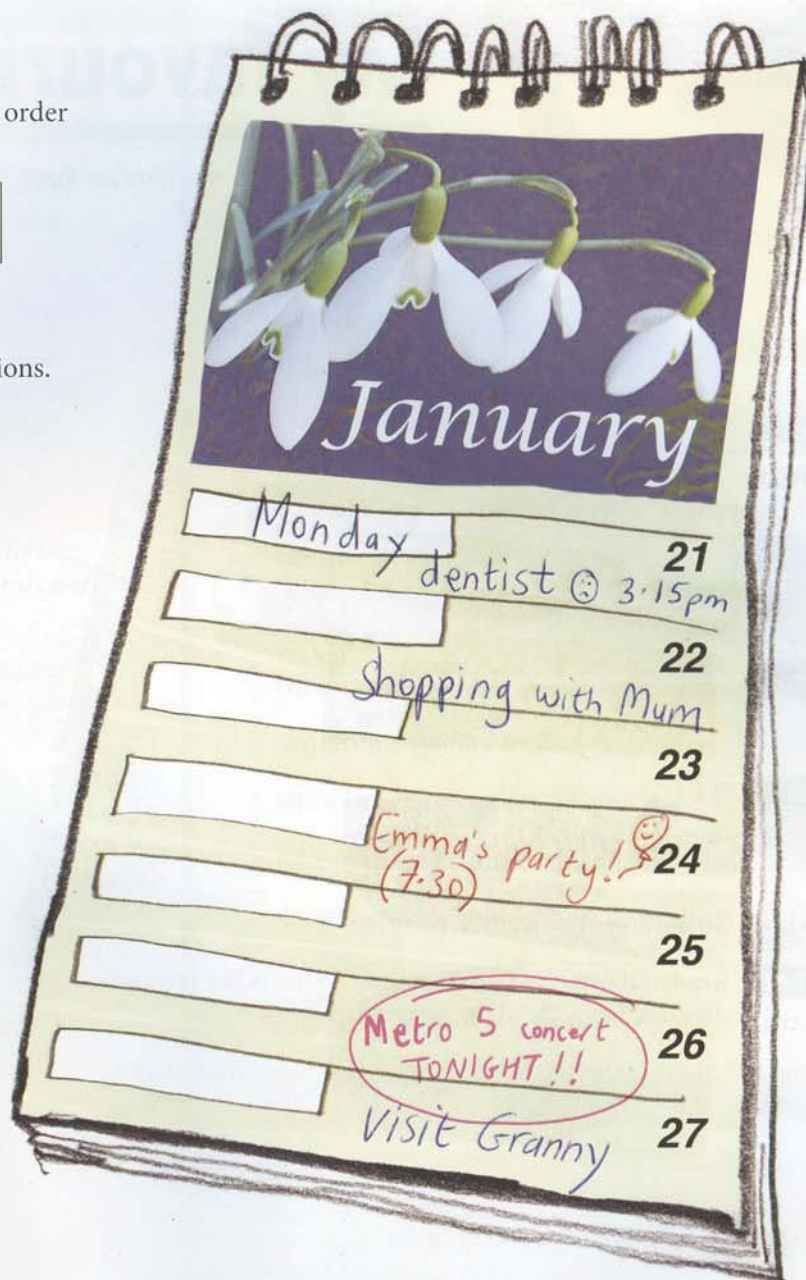 order
ions.
January
Monday
21
dentist 3.15pm
22
Shopping with Mum
23
Emma's party!
24
(7.30)
25
Metro 5 concert
26
TONIGHT!!
Visit Granny
27